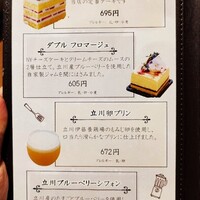 当店の定番ケーキです
695円
ダブル フロマージュ
NYチーズケーキとクリームチーズのムースの
2種仕立て。立川産ブルーベリーを使用した
自家製ジャムを間にはさみました。
605円
アレルギー
立川卵プリン
立川伊藤養鶏場のもみじ卵を使用し、
口当たり滑らかなプリンに仕上げました。
672円
アレルギー 乳・卵
立川ブルーベリーシフォン
ブルーベリーを使用し